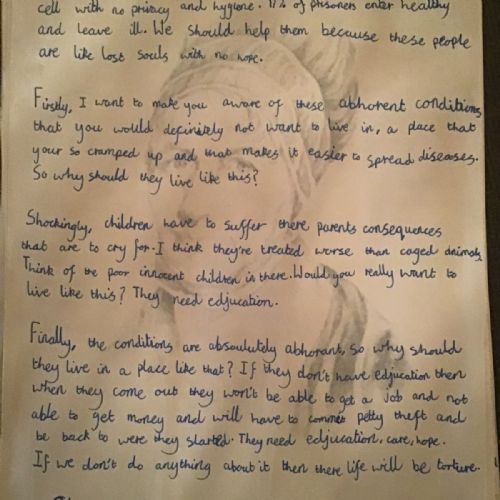 cell with no privacy and hygiene. 17% of prisoners enter healthy
and leave ill. We should help them because these people
are like lost souls with no hope.
Firstly, I want to make you aware of these abhorent conditions
that you would definitely not want to live in, a place that
your so cramped up and that makes it easier to spread diseases.
So why should they live like this?
Shockingly, children have to suffer there parents consequences
that are to cry for. I think they're treated worse than caged animals.
Think of the poor innocent children in there. Would you really want to
live like this? They need edjucation.
Finally, the conditions are absoulutely abhorant, so why should
they live in a place like that? If they don't have edjucation then
when they come out they won't be able to get a job and not
able to get money and will have to commit petty theft and
be back to were they started. They need edjucation, care, hope.
If we don't do anything about it then there life will be torture.